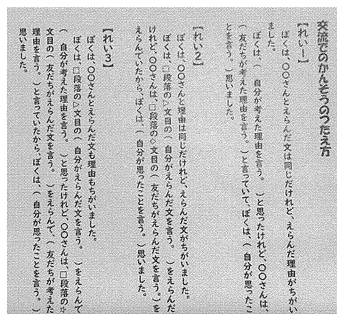 交流でのかんそうのつたえ方
【れい1】
ぼくは、〇〇さんとえらんだ文は同じだけれど、えらんだ理由がちがい
ました。
ぼくは、（ 自分が考えた理由を言う。 ）と思ったけれど、〇〇さんは、
（ 友だちが考えた理由を言う。 ）と言っていて、ぼくは、（ 自分が思ったこ
とを言う。 ）思いました。
【れい2】
ぼくは、〇〇さんと理由は同じだけれど、えらんだ文がちがいました。
ぼくは、□段落の▷文目の（ 自分がえらんだ文を言う。 ）をえらんだ
けれど、〇〇さんは、□段落の◇文目の（ 友だちがえらんだ文を言う。）を
えらんでいたから、ぼくは、（ 自分が思ったことを言う。 ）思いました。
【れい3】
ぼくは、〇〇さんとえらんだ文も理由もちがいました。
ぼくは、□段落の▷文目の（ 自分がえらんだ文を言う。 ）をえらんで
（ 自分が考えた理由を言う。 ）と思ったけれど、〇〇さんは、□段落の☆
文目の（ 友だちがえらんだ文を言う。 ）をえらんで、（ 友だちが考えた
理由を言う。 ）と言っていたから、ぼくは、（ 自分が思ったことを言う。 ）
思いました。